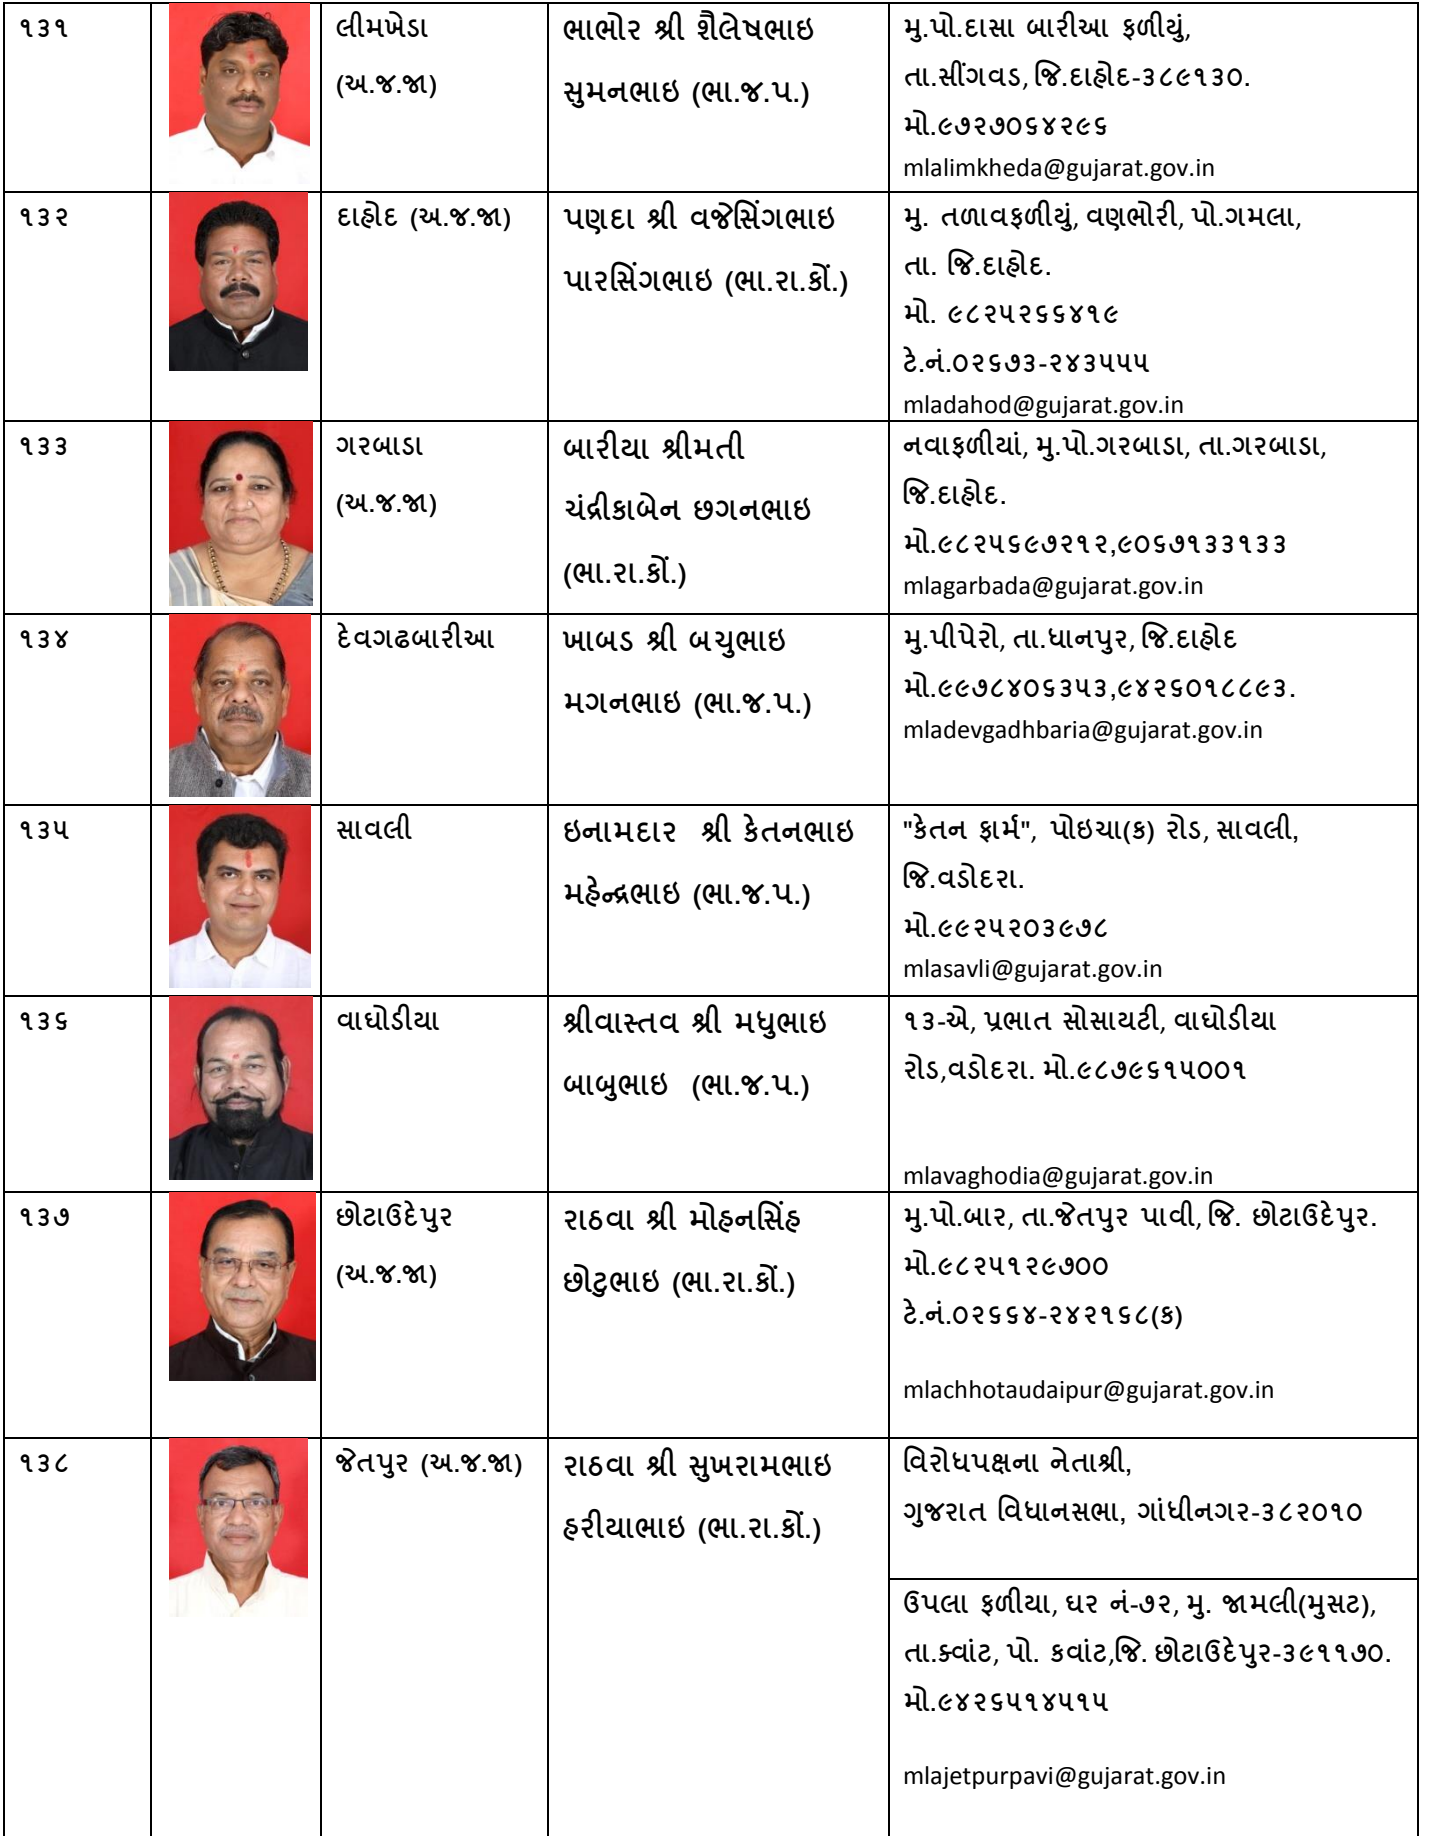 ૧૩૧
લીમખેડા
(અ.જ.જા)
ભાભોર શ્રી શૈલેષભાઇ
સુમનભાઇ (ભા.જ.પ.)
મુ.પો.દાસા બારીઆ ફળીયું,
તા.સીંગવડ, જિ.દાહોદ-૩૮૯૧૩૦.
મો.૯૭૨૭૦૬૪૨૯૬
mlalimkheda@gujarat.gov.in
૧૩૨
દાહોદ (અ.જ.જા)
પણદા શ્રી વજેસિંગભાઇ
પારસિંગભાઇ (ભા.રા.કોં.)
મુ. તળાવફળીયું, વણભોરી, પો.ગમલા,
તા. જિ.દાહોદ.
મો. ૯૮૨૫૨૬૬૪૧૯
ટે.નં.૦૨૬૭૩-૨૪૩૫૫૫
mladahod@gujarat.gov.in
૧૩૩
ગરબાડા
(અ.જ.જા)
બારીયા શ્રીમતી
ચંદ્રીકાબેન છગનભાઇ
(ભા.રા.કોં.)
નવાફળીયાં, મુ.પો.ગરબાડા, તા.ગરબાડા,
જિ.દાહોદ.
મો.૯૮૨૫૬૯૭૨૧૨,૯૦૬૭૧૩૩૧૩૩
mlagarbada@gujarat.gov.in
૧૩૪
દેવગઢબારીઆ
ખાબડ શ્રી બચુભાઇ
મગનભાઇ (ભા.જ.પ.)
મુ.પીપેરો, તા.ધાનપુર, જિ.દાહોદ
મો.૯૯૭૮૪૦૬૩૫૩,૯૪૨૬૦૧૮૮૯૩.
mladevgadhbaria@gujarat.gov.in
૧૩૫
સાવલી
ઇનામદાર શ્રી કેતનભાઇ
મહેન્દ્રભાઇ (ભા.જ.પ.)
"કેતન ફાર્મ", પોઇચા(ક) રોડ, સાવલી,
જિ.વડોદરા.
મો.૯૯૨૫૨૦૩૯૭૮
mlasavli@gujarat.gov.in
૧૩૬
વાઘોડીયા
શ્રીવાસ્તવ શ્રી મધુભાઇ
બાબુભાઇ (ભા.જ.પ.)
૧૩-એ, પ્રભાત સોસાયટી, વાઘોડીયા
રોડ,વડોદરા. મો.૯૮૭૯૬૧૫૦૦૧
mlavaghodia@gujarat.gov.in
૧૩૭
છોટાઉદેપુર
(અ.જ.જા)
રાઠવા શ્રી મોહનસિંહ
છોટુભાઇ (ભા.રા.કોં.)
મુ.પો.બાર, તા.જેતપુર પાવી, જિ. છોટાઉદેપુર.
મો.૯૮૨૫૧૨૯૭૦૦
ટે.નં.૦૨૬૬૪-૨૪૨૧૬૮(ક)
mlachhotaudaipur@gujarat.gov.in
૧૩૮
જેતપુર (અ.જ.જા)
રાઠવા શ્રી સુખરામભાઇ
હરીયાભાઇ (ભા.રા.કોં.)
વિરોધપક્ષના નેતાશ્રી,
ગુજરાત વિધાનસભા, ગાંધીનગર-૩૮૨૦૧૦
ઉપલા ફળીયા, ઘર નં-૭૨, મુ. જામલી(મુસટ),
તા.ક્વાંટ, પો. કવાંટ,જિ. છોટાઉદેપુર-૩૯૧૧૭૦.
મો.૯૪૨૬૫૧૪૫૧૫
mlajetpurpavi@gujarat.gov.in